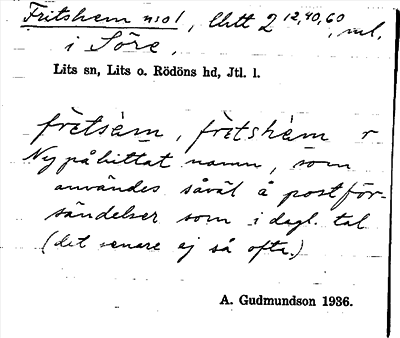 Fritshem nso1, litt 2 12,40,60, m.l.
i Söre,
Lits sn, Lits o. Rödöns hd, Jtl. l.
frètsèm, frètshèm r
Nypåhittat namn, som
användes såväl å postför-
sändelser som i dagl. tal
(det senare ej så ofta.)
A. Gudmundson 1936.